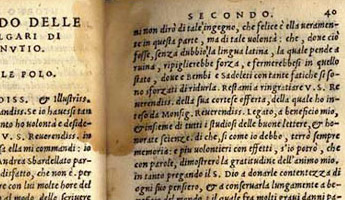 DO DELLE
LGARI DI
NVTIO.
LE POLO.
DISS. & Illustriss.
and iss. Se io hauesse tan
nto ho volontà e disidè-
V. S. Reuerendiss. in
e ella mi commandò: io
Andrea Sbardellato par-
disfatto, che non è. per
re con lui molte hore del
SECONDO. 40
ni non dirò di tale ingegno, che felice è ella veramen-
te in questa parte, ma di tale volontà: che, doue ciò
fosse, senza dubbio la lingua latina, la quale pende a
ruina, ripiglierebbe forza, e fermerebbesi in quello
stato, doue e Bembi e Sadoleti con tante fatiche si so-
no sforzati di ridurla. Restami a ringratiare V. S. Re
uerendiss. della sua cortese offerta, della quale ho inte-
so da Monsig. Reuerendiss. Legato, a beneficio mio,
& insieme di tutti i studiosi delle buone lettere, e gran-
di scienze. di che, sì come io debbo, terrò sempre
memoria: e più volentieri con effetti, s'io potrò, che
con parole, dimostrerò la gratitudine dell'animo mio,
in tanto pregando il S. Dio a donarle contentezza di
ogni suo pensiero, & a conseruarla lungamente a be-